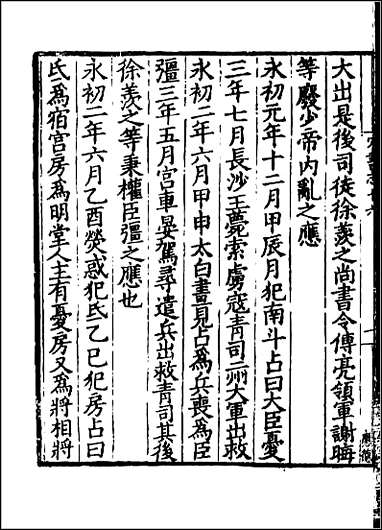 大出是後司徒徐羨之尚書令傅亮領軍謝晦
等廢少帝内亂之應
永初元年十二月甲辰月犯南斗占曰大臣憂
三年七月長沙王薨索虜寇青司二州大軍出救
永初二年六月甲申太白晝見占爲兵喪爲臣
彊三年五月宫車晏駕尋遣兵出救青司其後
徐羨之等秉權臣彊之應也
永初二年六月乙酉熒惑犯氐乙巳犯房占曰
氐爲宿宫房爲明堂人主有憂房又爲將相將